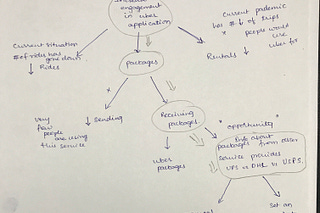 increase
engagement
in uber
application
Current situation
# of rides has
gone down
↓ Rides
Current pandemic
has # ↓ of trips
* people would
like
uber for
Rentals ↓
packages
Very
few
people
are using
this service
↓ sending
Receiving
packages
uber
packages
* opportunity
Info about
packages from other
service providers
UPS vs DHL vs USPS.
Set an